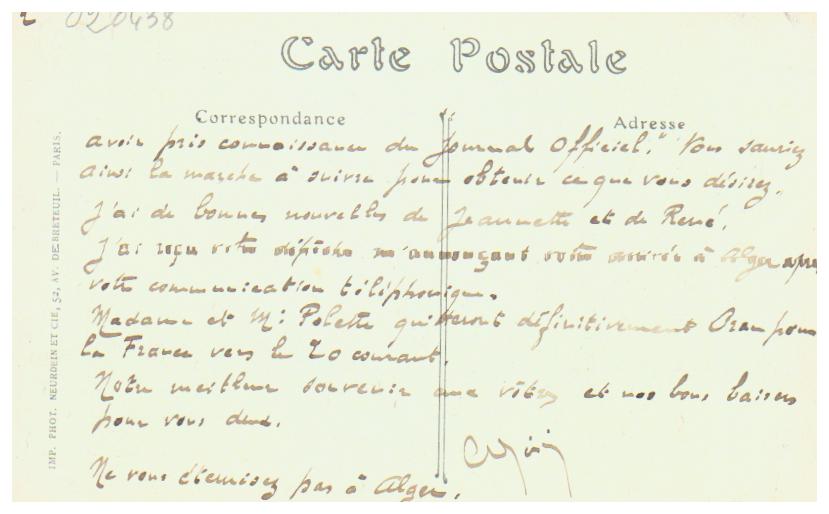 020438
Carte Postale
Correspondance
Adresse
avoir pris connaissance du Journal Officiel." Vous sauriez
ainsi la marche à suivre pour obtenir ce que vous désirez.
J'ai de bonnes nouvelles de Jeannette et de René.
J'ai reçu votre dépêche m'annonçant votre arrivée à Alger après
votre communication téléphonique.
Madame et Mr Polette quitteront définitivement Oran pour
la France vers le 20 courant.
Notre meilleur souvenir aux vôtres et nos bons baisers
pour vous deux.
Ne vous éternisez pas à Alger.
IMP. PHOT. NEURDEIN ET CIE, 52, AV. DE BRETEUIL. — PARIS.